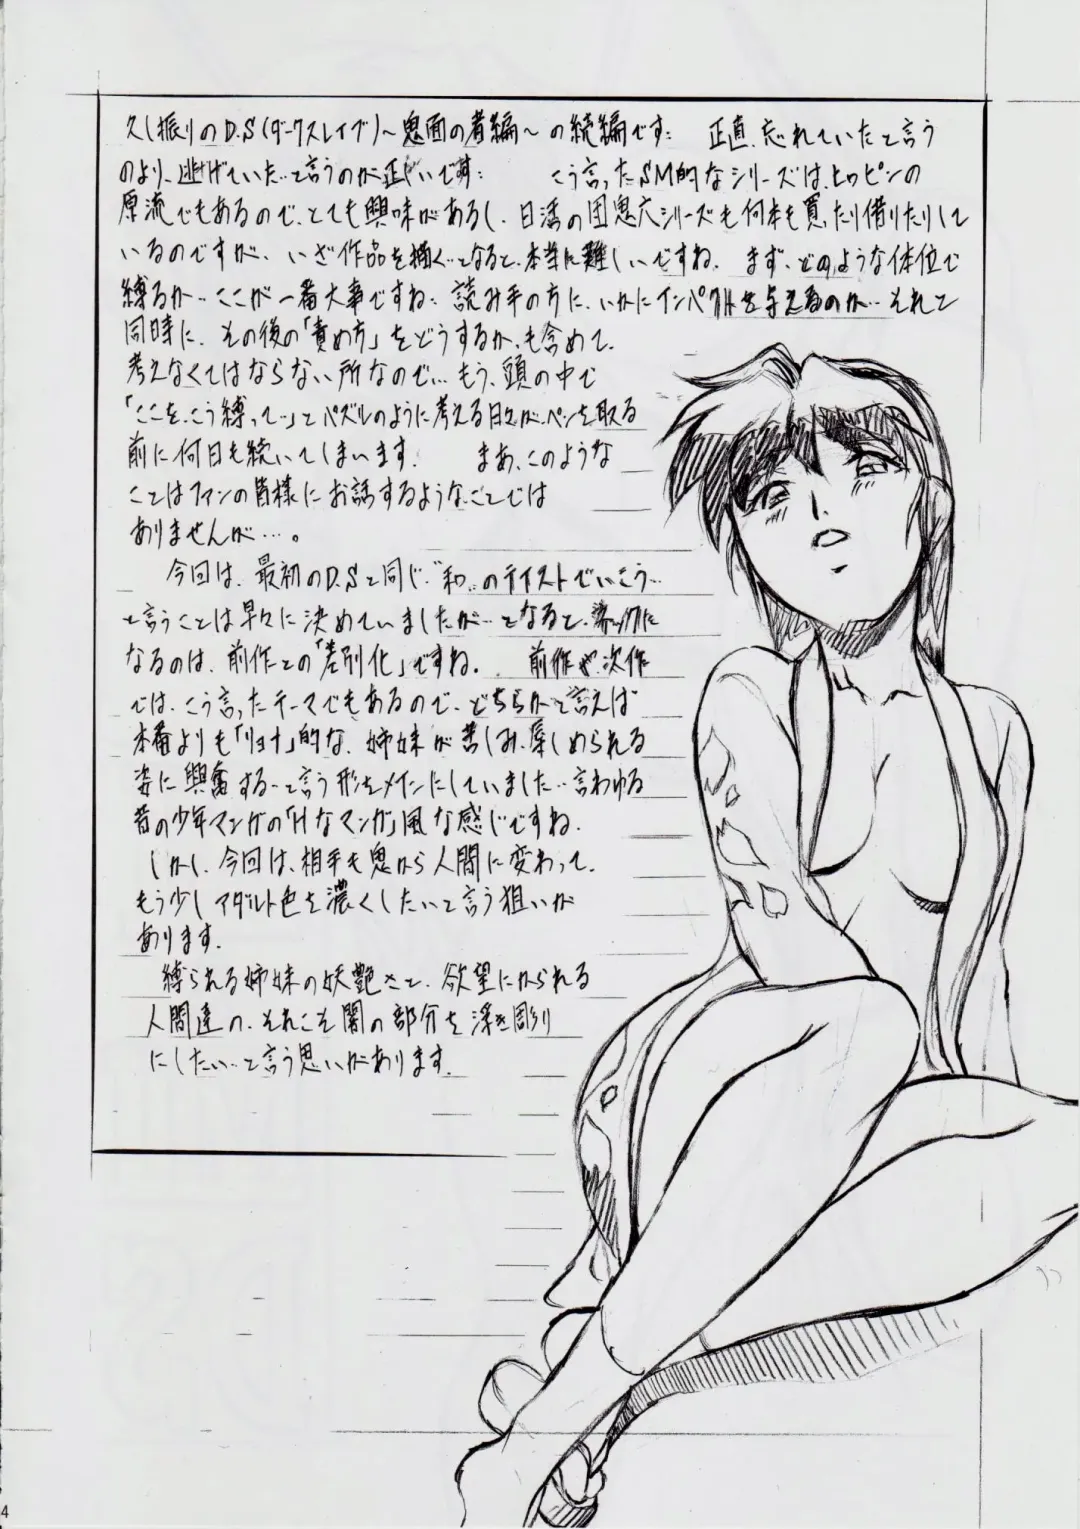 久し振りのD.S(ダークスレイブ)〜鬼面の者編〜の続編です… 正直、忘れていたと言う
のより、逃げていた…と言うのが正しいです… こう言ったSM的なシリーズは、ヒロピンの
原流でもあるので、とても興味があるし、日活の団鬼六シリーズも何本も買ったり借りたりして
いるのですが、いざ作品を描く…となると、本当に難しいですね。 まず、どのような体位で
縛るか…ここが一番大事ですね… 読み手の方に、いかにインパクトを与えるのか…それと
同時に、その後の「責め方」をどうするか、も含めて、
考えなくてはならない所なので…もう、頭の中で
「ここを、こう縛って…」とパズルのように考える日々が、ペンを取る
前に何日も続いてしまいます。 まあ、このような
ことはファンの皆様にお話するような、ことでは
ありませんが…。
今回は、最初のD.Sと同じ、“和„のテイストでいこう…
と言うことは早々に決めていましたが…となると、ネックに
なるのは、前作との「差別化」ですね。 前作や次作
では、こう言ったテーマでもあるので、どちらかと言えば
本番よりも「リョナ」的な、姉妹が苦しみ、辱しめられる
姿に興奮する…と言う形をメインにしていました…言わゆる
昔の少年マンガの「Hなマンガ」風な感じですね。
しかし、今回は、相手も鬼から人間に変わって、
もう少しアダルト色を濃くしたいと言う狙いが
あります。
縛られる姉妹の妖艶さと、欲望にかられる
人間達の、それこそ闇の部分を浮き彫り
にしたい…と言う思いがあります。
4